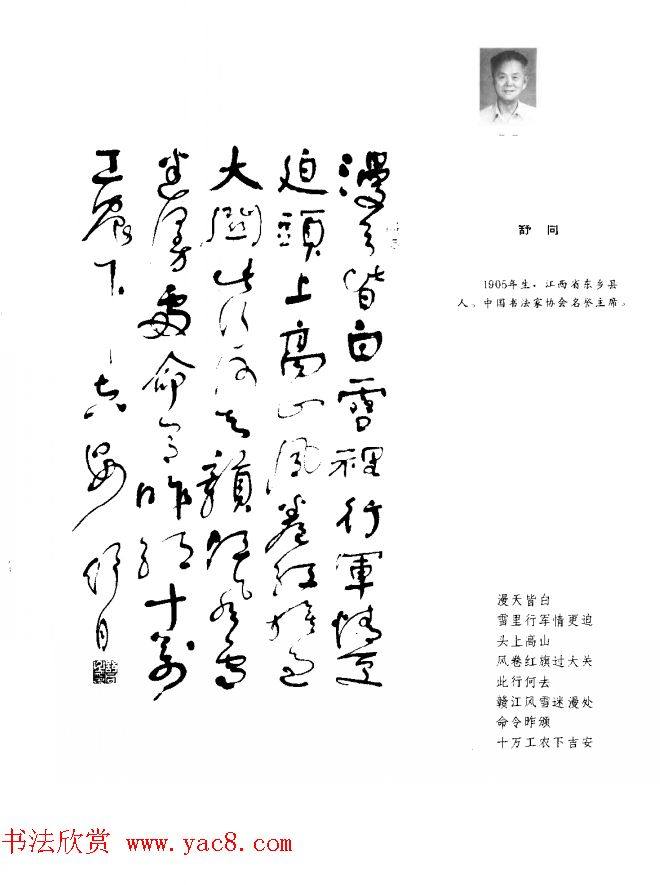 漫天皆白雪裡行軍情更
迫頭上高山風卷紅旗過
大關此行何去贛江風雪
迷漫處命令昨頒十萬
工農下吉安 舒同
舒 同
1905年生，江西省东乡县
人。中国书法家协会名誉主席。
漫天皆白
雪里行军情更迫
头上高山
风卷红旗过大关
此行何去
赣江风雪迷漫处
命令昨颁
十万工农下吉安
书法欣赏 www.yac8.com